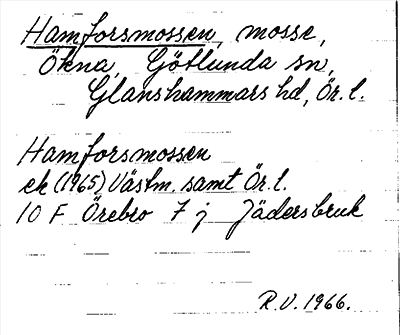 Hamforsmossen, mosse,
Ökna, Götlunda sn,
Glanshammars hd, Ör. l.
Hamforsmossen
ek (1965) Västm. samt Ör. l.
10 F Örebro 7 j Jädersbruk
R.V. 1966.